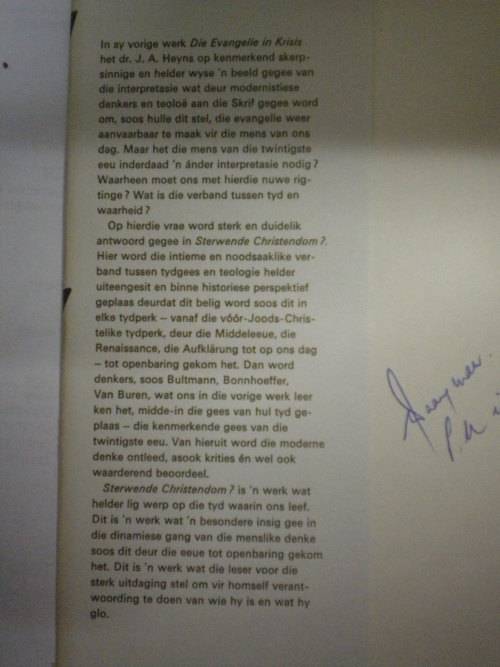 In sy vorige werk Die Evangelie in Krisis
het dr. J. A. Heyns op kenmerkend skerp-
sinnige en helder wyse 'n beeld gegee van
die interpretasie wat deur modernistiese
denkers en teoloë aan die Skrif gegee word
om, soos hulle dit stel, die evangelie weer
aanvaarbaar te maak vir die mens van ons
dag. Maar het die mens van die twintigste
eeu inderdaad 'n ánder interpretasie nodig?
Waarheen moet ons met hierdie nuwe rig-
tinge? Wat is die verband tussen tyd en
waarheid?
Op hierdie vrae word sterk en duidelik
antwoord gegee in Sterwende Christendom?.
Hier word die intieme en noodsaaklike ver-
band tussen tydgees en teologie helder
uiteengesit en binne historiese perspektief
geplaas deurdat dit belig word soos dit in
elke tydperk – vanaf die vóór-Joods-Chris-
telike tydperk, deur die Middeleeue, die
Renaissance, die Aufklärung tot op ons dag
– tot openbaring gekom het. Dan word
denkers, soos Bultmann, Bonnhoeffer,
Van Buren, wat ons in die vorige werk leer
ken het, midde-in die gees van hul tyd ge-
plaas – die kenmerkende gees van die
twintigste eeu. Van hieruit word die moderne
denke ontleed, asook krities én wel ook
waarderend beoordeel.
Sterwende Christendom? is 'n werk wat
helder lig werp op die tyd waarin ons leef.
Dit is 'n werk wat 'n besondere insig gee in
die dinamiese gang van die menslike denke
soos dit deur die eeue tot openbaring gekom
het. Dit is 'n werk wat die leser voor die
sterk uitdaging stel om vir homself verant-
woording te doen van wie hy is en wat hy
glo.